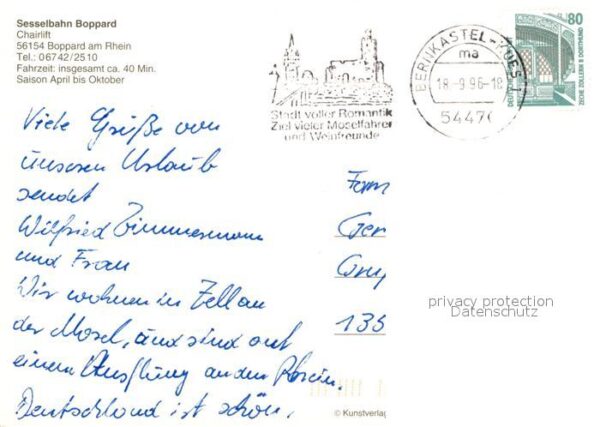 Sesselbahn Boppard
Chairlift
56154 Boppard am Rhein
Tel.: 06742/2510
Fahrzeit: insgesamt ca. 40 Min.
Saison April bis Oktober
Stadt voller Romantik
Ziel vieler Moselfahrer
und Weinfreunde
BERNKASTEL-KUES
ma
18.-9.96-18
5447
80
ZECHE ZOLLERN II DORTMUND
Viele Grüße von
unseren Urlaub
sendet
Wilfried Zimmermann
und Frau
Wir wohnen in Zell an
der Mosel, und sind auf
einem Ausflung an den Rhein.
Deutschland ist schön.
Fam
Ger
135
privacy protection
Datenschutz
© Kunstverlag